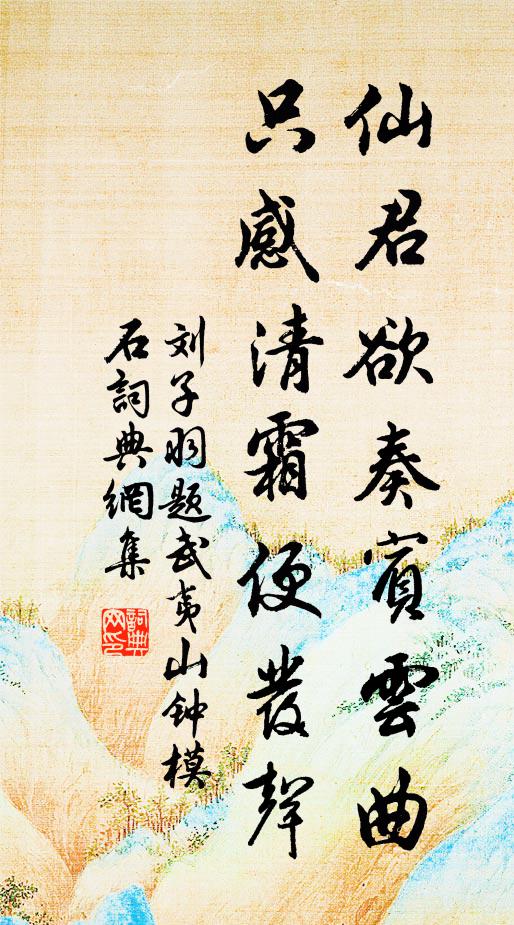 仙君欲奏賓雲曲
只感清霜便發聲
刘子羽题武夷山钟模
石詞典網集
詞典网印